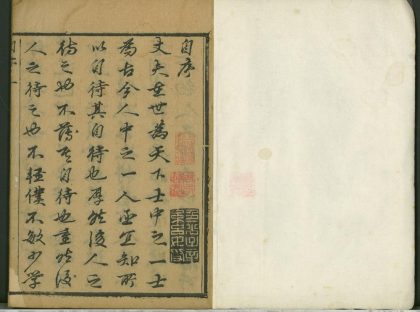 自序
丈夫在世為天下士中之一士
為古今人中之一人亟宜知所
以自待其自待也厚然後人之
待之也不薄其自待也重然後
人之待之也不輕僕不敏少學